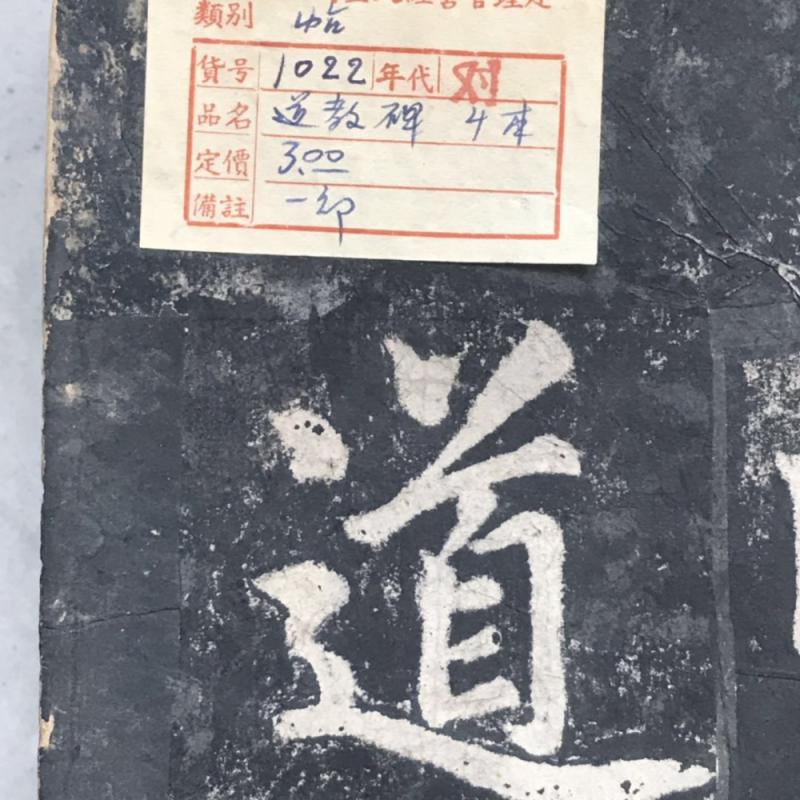 類别 帖
貨号 1022 年代
品名 道教碑 4本
定價 3.00
備註 一印
道